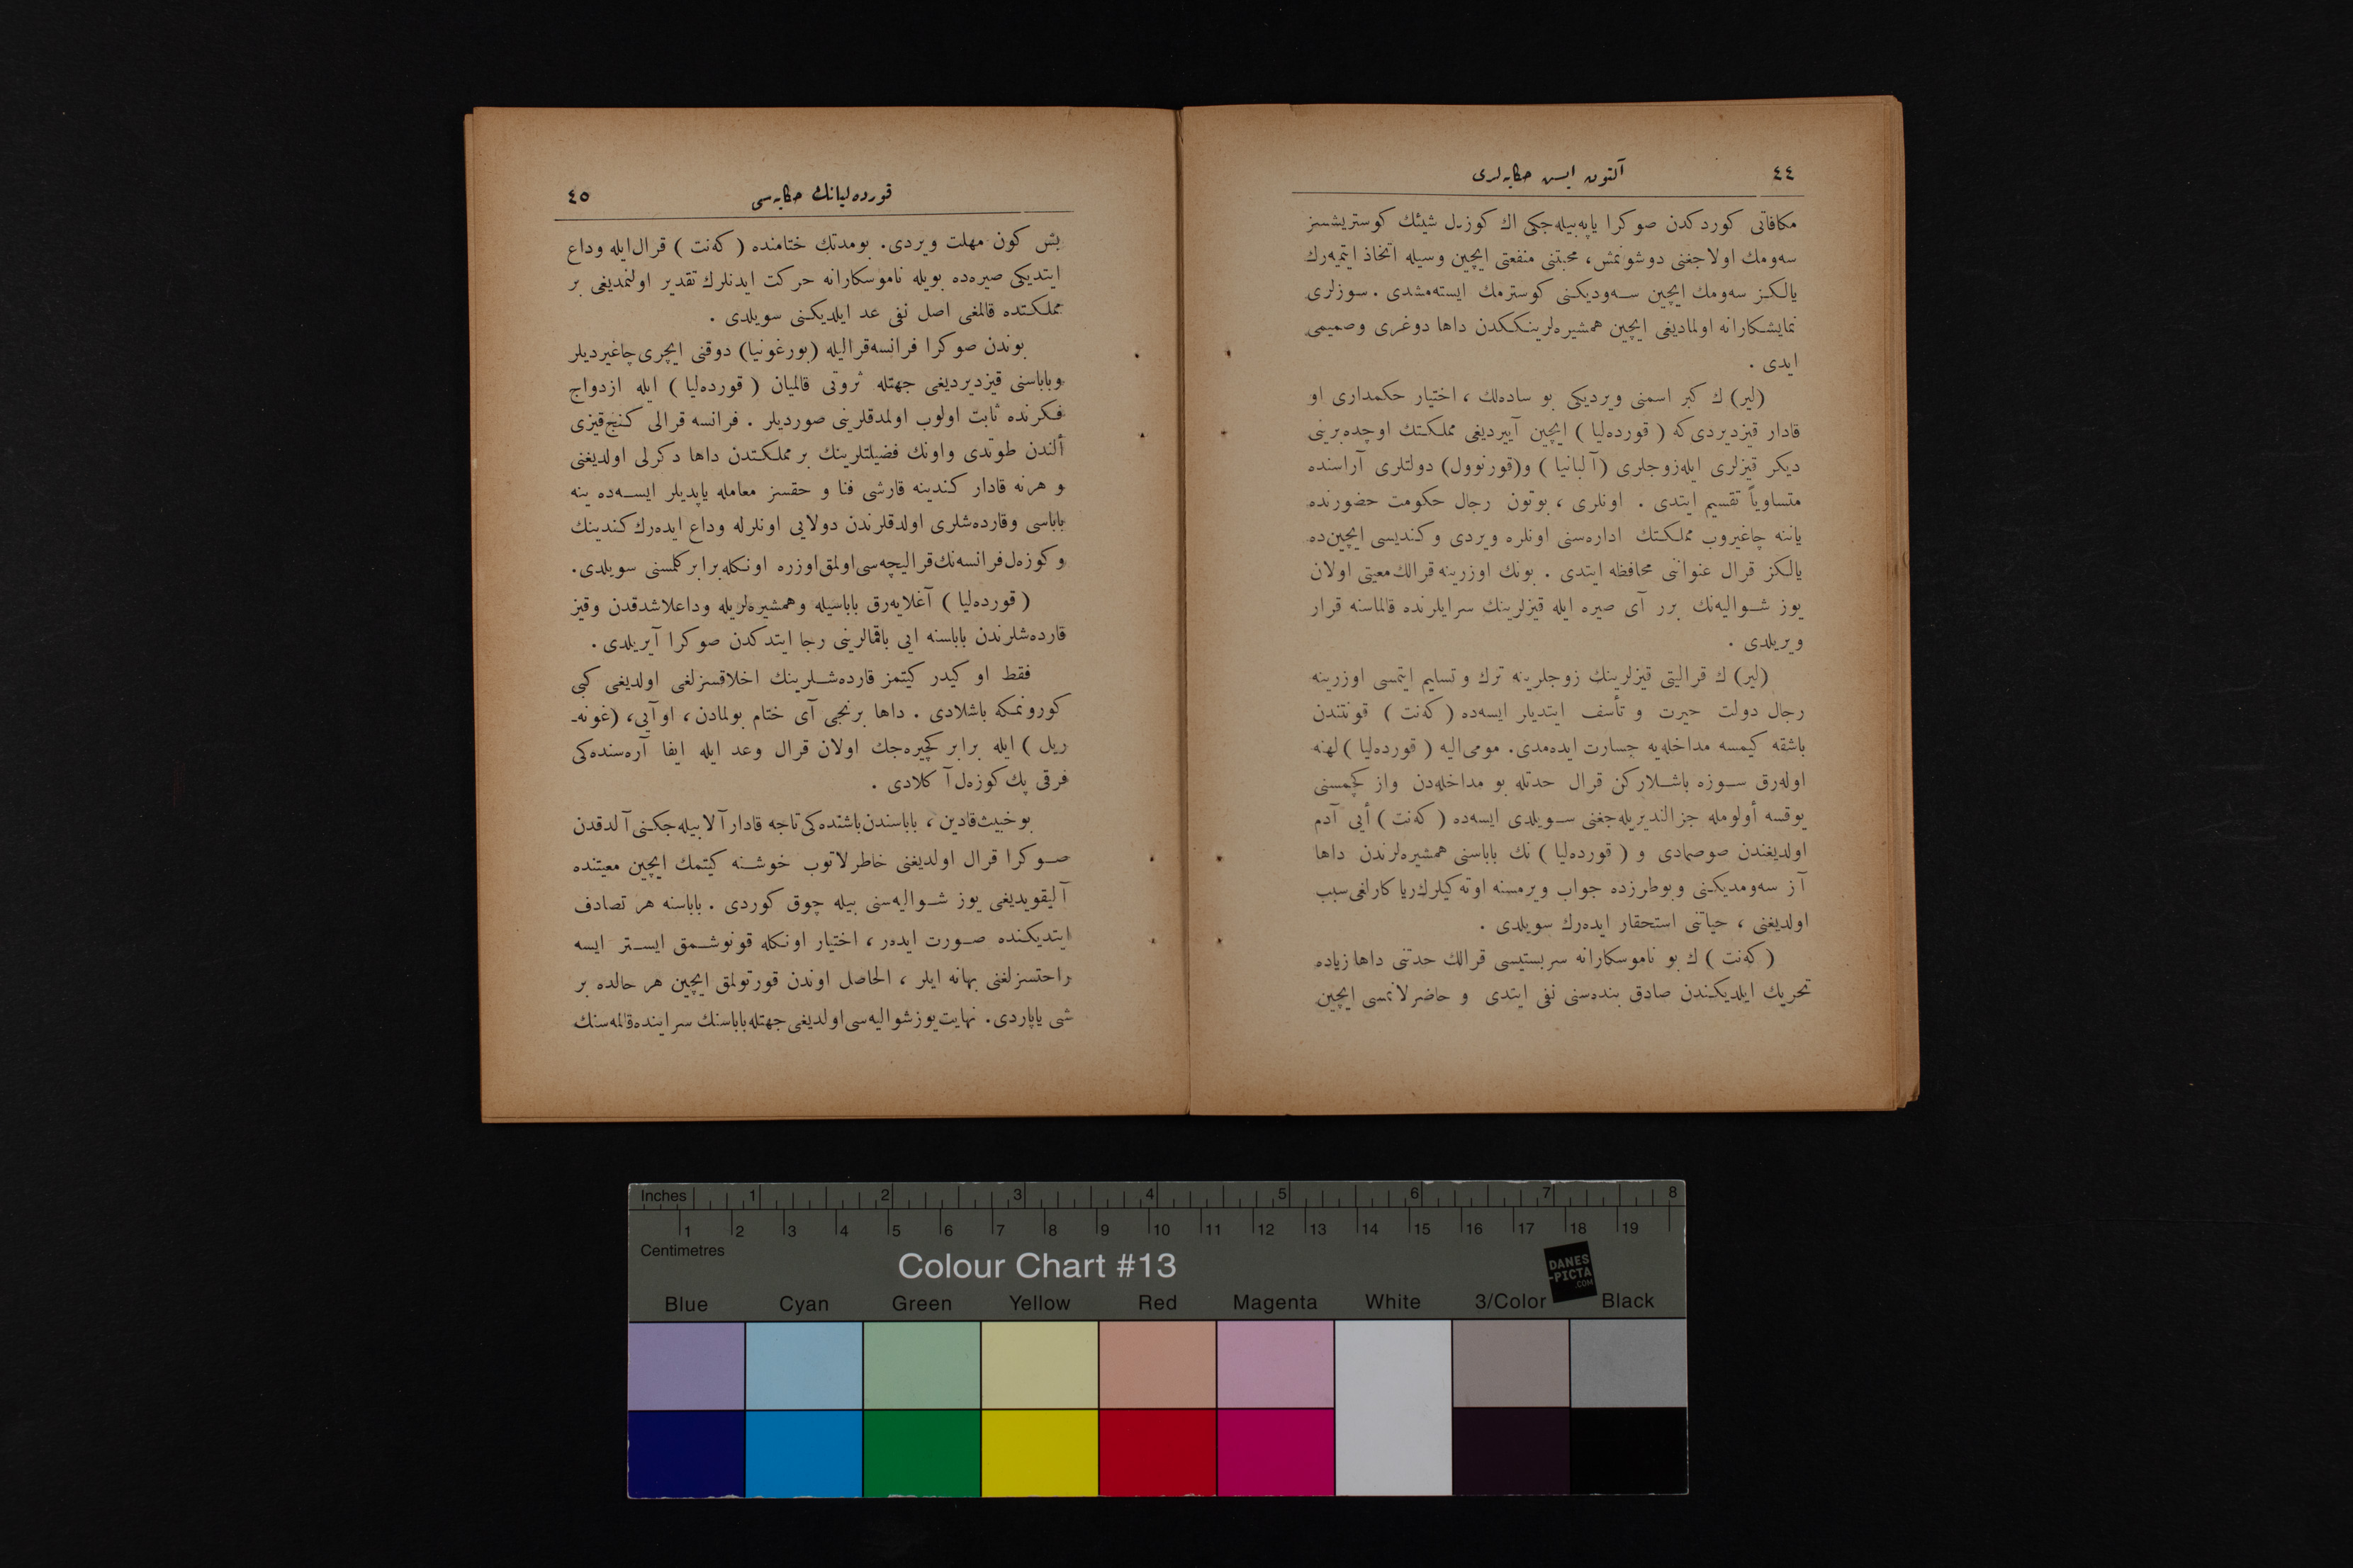 ٤٤
آلتون ايسن حكايه‌لری
مكافاتی كوردكدن صوكرا ياپه‌بيله‌جكی اك كوزل شيئك كوستريشسز
سه‌ومك اولاجغنی دوشونمش، محبتنی منفعتی ايچين وسيله اتخاذ ايتميه‌رك
يالكز سه‌ومك ايچين سه‌وديكنی كوسترمك ايسته‌مشدی . سوزلری
نمايشكارانه اولماديغی ايچين همشيره‌لرينككدن داها دوغری وصميمی
ايدی .
(لير) ك كبر اسمنی ويرديكی بو ساده‌لك ، اختيار حكمداری او
قادار قيزديردی كه ( قورده‌ليا ) ايچين آييرديغی مملكتك اوچده برينی
ديكر قيزلری ايله زوجلری (آلبانيا ) و(قورنوول) دولتلری آراسنده
متساوياً تقسيم ايتدی . اونلری ، بوتون رجال حكومت حضورنده
ياننه چاغيروب مملكتك اداره‌سنی اونلره ويردی وكنديسی ايچين‌ده
يالكز قرال عنواننی محافظه ايتدی . بونك اوزرينه قرالك معيتی اولان
يوز شواليه‌نك برر آی صيره ايله قيزلرينك سرايلرنده قالماسنه قرار
ويريلدی .
(لير) ك قراليتی قيزلرينك زوجلرينه ترك وتسليم ايتمسی اوزرينه
رجال دولت حيرت و تأسف ايتديلر ايسه‌ده ( كه‌نت ) قونتندن
باشقه كيمسه مداخله‌يه جسارت ايده‌مدی. مومی‌اليه ( قورده‌ليا ) لهنه
اوله‌رق سوزه باشلاركن قرال حدتله بو مداخله‌دن واز كچمسنی
يوقسه أولومله جزالنديريله‌جغنی سويلدی ايسه‌ده ( كه‌نت ) أيی آدم
اولديغندن صوصمادی و ( قورده‌ليا ) نك باباسنی همشيره‌لرندن داها
آز سه‌ومديكنی وبوطرزده جواب ويرمسنه اوته‌كيلرك رياكارلغی سبب
اولديغنی ، حياتنی استحقار ايده‌رك سويلدی .
( كه‌نت ) ك بو ناموسكارانه سربستيسی قرالك حدتنی داها زياده
تحريك ايلديكندن صادق بنده‌سنی نفی ايتدی و حاضرلانمسی ايچين
قورده‌ليانك حكايه‌سی
٤٥
بش كون مهلت ويردی. بومدتك ختامنده ( كه‌نت ) قرال ايله وداع
ايتديكی صيره‌ده بويله ناموسكارانه حركت ايدنلرك تقدير اولنمديغی بر
مملكتده قالمغی اصل نفی عد ايلديكنی سويلدی .
بوندن صوكرا فرانسه قراليله (بورغونيا) دوقنی ايچری چاغيرديلر
وباباسنی قيزديرديغی جهتله ثروتی قالميان ( قورده‌ليا ) ايله ازدواج
فكرنده ثابت اولوب اولمدقلرينی صورديلر . فرانسه قرالی كنج قيزی
ألندن طوتدی واونك فضيلتلرينك بر مملكتدن داها دكرلی اولديغنی
و هرنه قادار كندينه قارشی فنا و حقسز معامله ياپديلر ايسه‌ده ينه
باباسی وقارده‌شلری اولدقلرندن دولايی اونلرله وداع ايده‌رك كندينك
وكوزه‌ل فرانسه‌نك قراليچه‌سی اولمق اوزره اونكله برابر كلمسنی سويلدی.
( قورده‌ليا ) آغلايه‌رق باباسيله وهمشيره‌لريله وداعلاشدقدن وقيز
قارده‌شلرندن باباسنه ايی باقمالرينی رجا ايتدكدن صوكرا آيريلدی .
فقط او كيدر كيتمز قارده‌شلرينك اخلاقسزلغی اولديغی كبی
كورونمكه باشلادی . داها برنجی آی ختام بولمادن ، اوآيی، (غونه‌ـ
ريل ) ايله برابر كچيره‌جك اولان قرال وعد ايله ايفا آره‌سنده‌كی
فرقی پك كوزه‌ل آكلادی .
بوخبيث قادين ، باباسندن باشنده‌كی تاجه قادار آلابيله‌جكنی آلدقدن
صوكرا قرال اولديغنی خاطرلاتوب خوشنه كيتمك ايچين معيتنده
آليقويديغی يوز شواليه‌سنی بيله چوق كوردی . باباسنه هر تصادف
ايتديكنده صورت ايده‌ر ، اختيار اونكله قونوشمق ايستر ايسه
راحتسزلغنی بهانه ايلر ، الحاصل اوندن قورتولمق ايچين هر حالده بر
شی ياپاردی. نهايت يوز شواليه‌سی اولديغی جهتله باباسنك سراينده قالمه‌سنك
Inches 1 2 3 4 5 6 7 8
1 2 3 4 5 6 7 8 9 10 11 12 13 14 15 16 17 18 19
Centimetres
Colour Chart #13
DANES
-PICTA
.COM
Blue Cyan Green Yellow Red Magenta White 3/Color Black